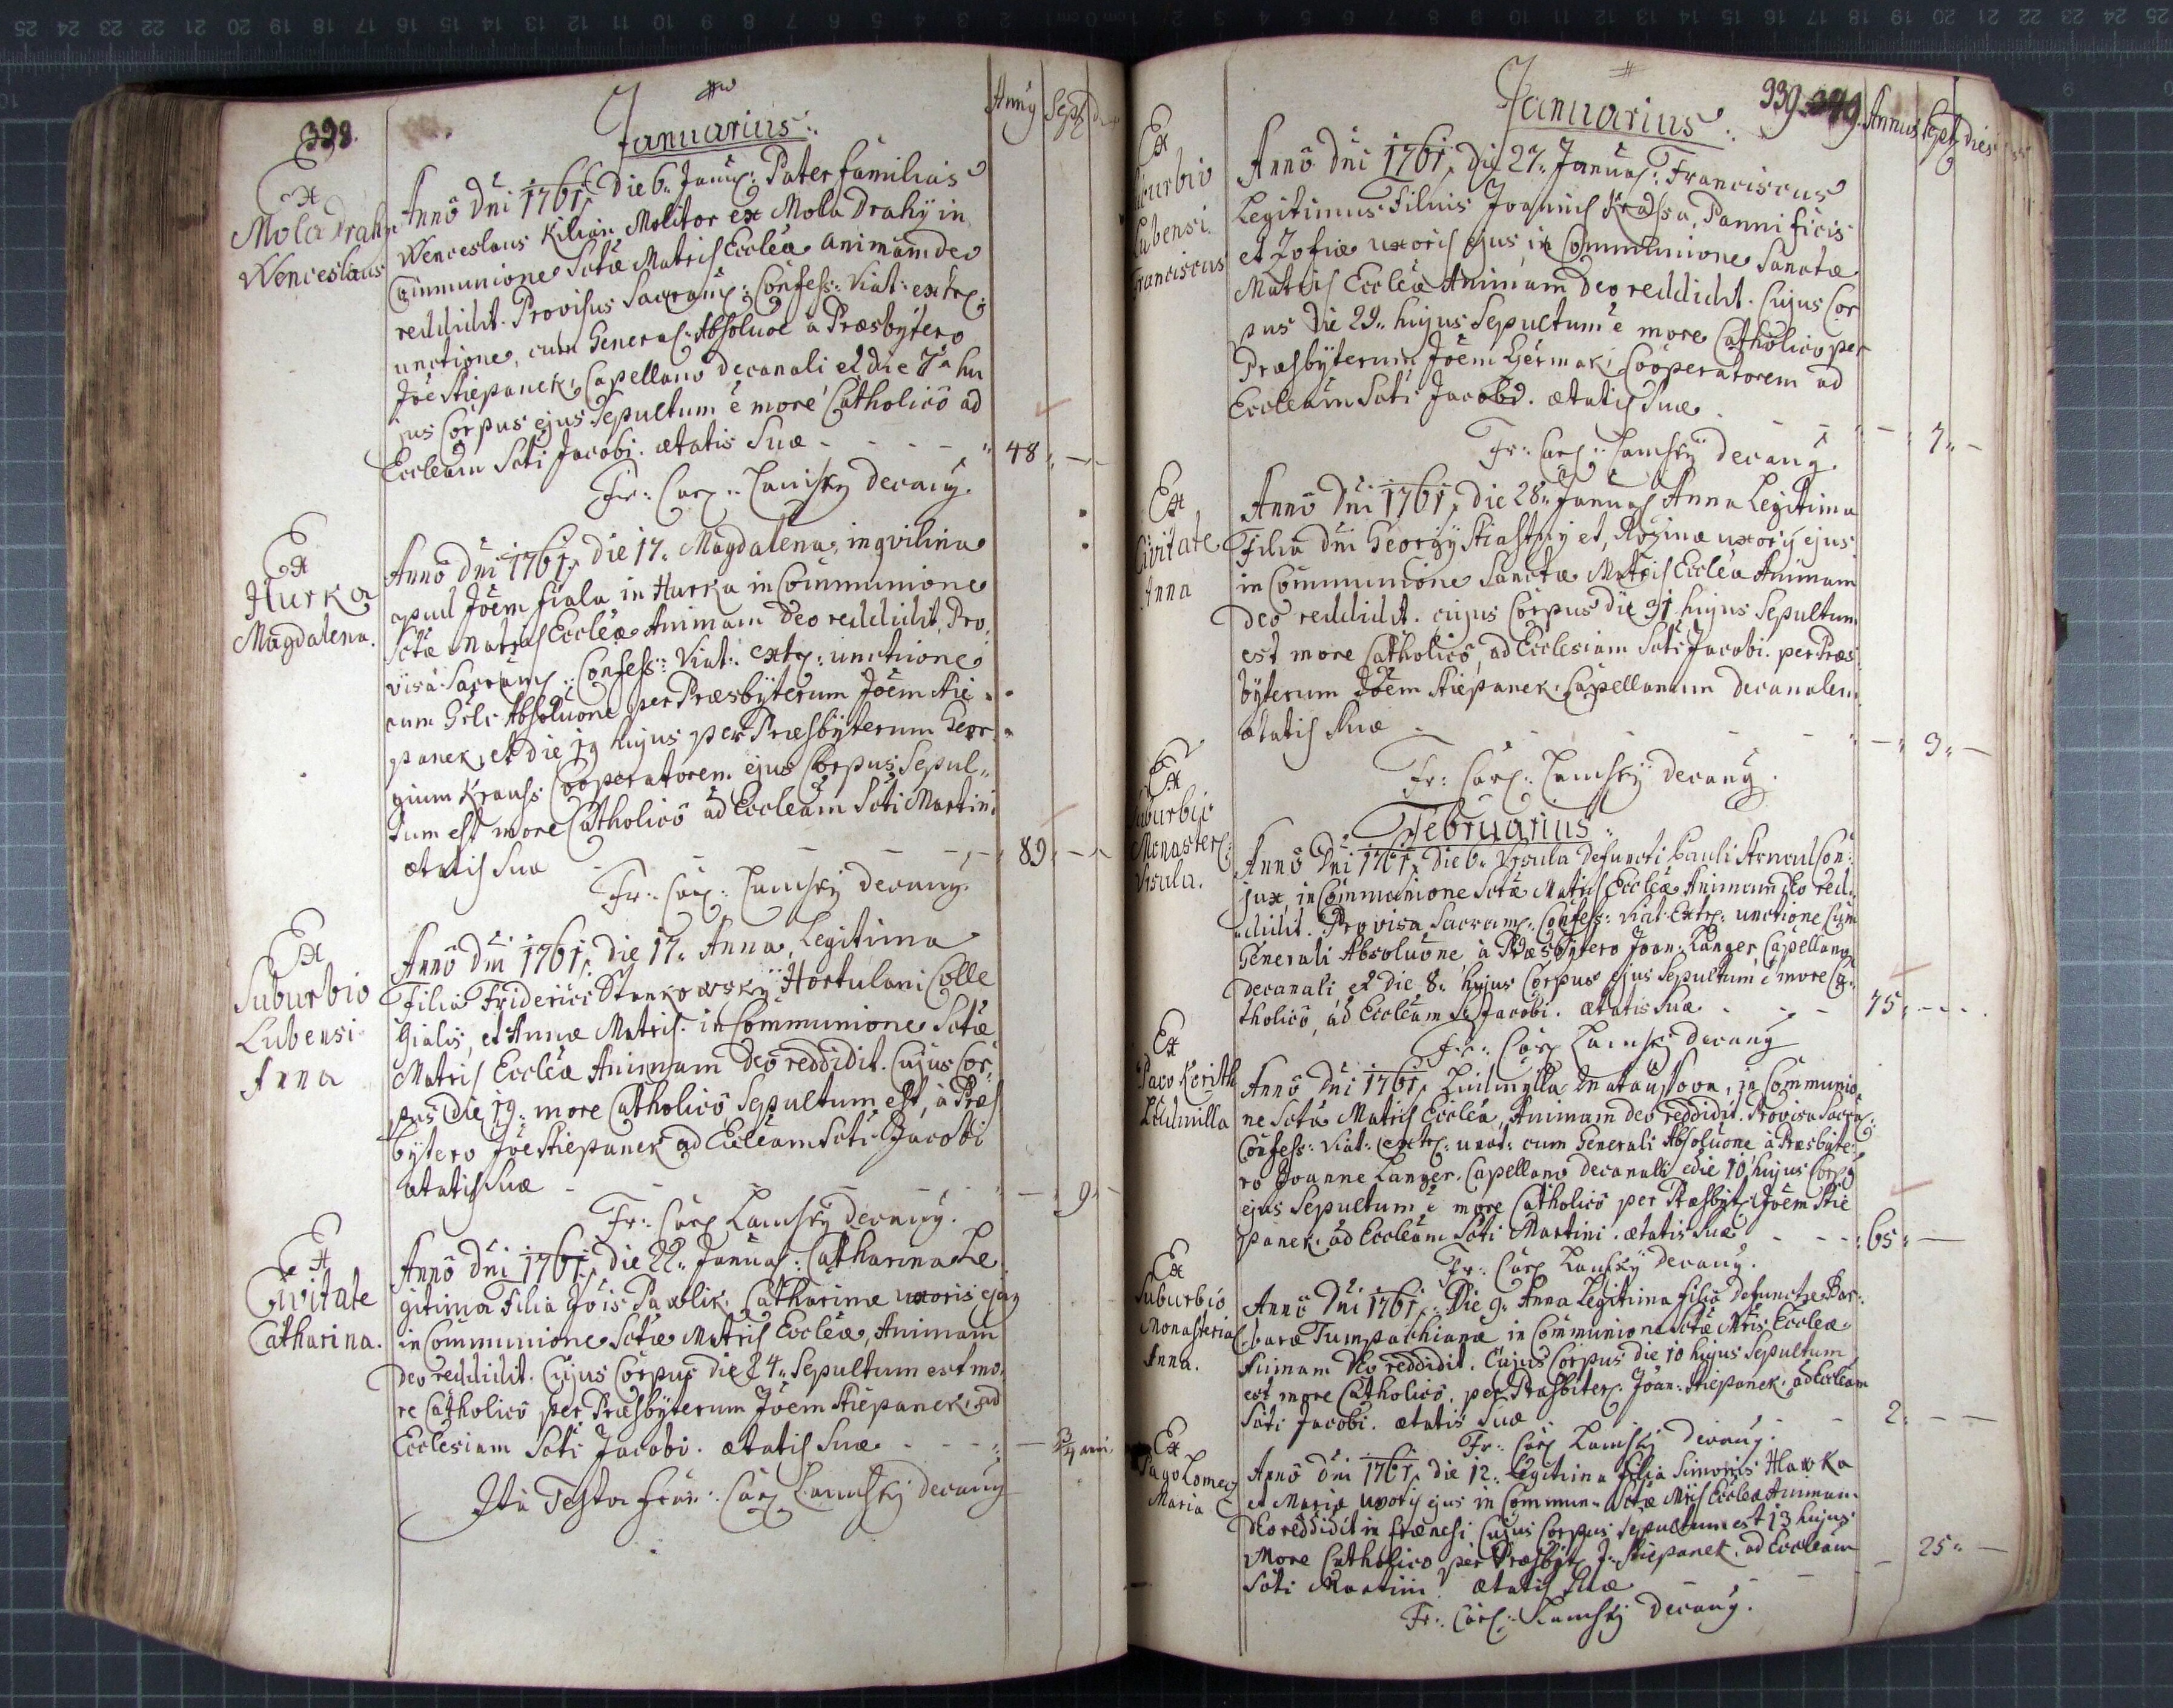 398.
Januarius
Annꝰ Sept
Ex
Mola Drahy
Wenceslaus
Anno Dni 1761, Die 6. Januar: Pater familias
Wenceslaus Kilian Molitor ex Mola Drahy in
Communione Sctæ Matris Eccleæ animam deo
reddidit. Provisus Sacram: Confess: Viat: extr:
unctione, cum General: Absoluoe à Præsbytero
Joe Stiepanek, Capellano decanali et die 7a hu
jus Corpus ejus Sepultum ē more Catholico ad
Eccleam Scti Jacobi. ætatis Suæ - - - - 48
Fr: Car: Lamsky decanꝰ.
Ex
Hurka
Magdalena.
Anno Dni 1761, die 17. Magdalena, inqvilina
apud Joem fiala in Hurka in Communione
Sctæ Matris Eccleæ Animam Deo reddidit, Pro,
visa Sacram: Confess: Viat: extr: unctione
cum Grli Absoluone per Præsbyterum Joem Stie
panek, et die 19 hujus per Præsbyterum Geor
gium Krauss Cooperatorem ejus Corpus Sepul,,
tum est more Catholico ad Eccleam Scti Martini
ætatis Suæ - - - - 89
Fr: Car: Lamsky decanꝰ.
Ex
Suburbio
Lubensi
Anna
Anno Dni 1761, die 17. Anna, Legitima
Filia Friderici Stankowsky Hortulani Colle
gialis, et Annæ Matris. in Communione Sctæ
Matris Eccleæ Animam Deo reddidit. Cujus Cor,
pus Die 19. more Catholico Sepultum est, à Præs
bytero Joe Stiepanek ad Eccleam Scti Jacobi
ætatis Suæ - - - - 9
Fr: Car: Lamsky decanꝰ.
Ex
Civitate
Catharina.
Anno Dni 1761, die 22. Januar: Catharina Le
gitima Filia Jois Pawlik, Catharinæ uxoris ejus
in Communione Sctæ Matris Eccleæ, Animam
deo reddidit. Cujus Corpus die 24. Sepultum est mo,
re Catholico per Præsbyterum Joem Stiepanek, ad
Ecclesiam Scti Jacobi. ætatis Suæ - - - 3/4 anni
Ita Testor Fran: Car: Lamsky decanꝰ
Januarius
339. 349.
Annus Sept dies
Ex
Suburbio
Lubensi
Franciscus
Anno Dni 1761, Die 27. Januar: Franciscus
Legitimus Filius Joannis Kradssa, Pannificis
et Zofiæ uxoris ejus, in Communione Sanctæ
Matris Eccleæ Animam Deo reddidit. Cujus Cor
pus die 29. hujus Sepultum ē more Catholico per
Præsbyterum Joem Germak, Cooperatorem ad
Eccleam Scti Jacobi. ætatis Suæ
- 7. -
Fr: Car: Lamsky decanꝰ.
Ex
Civitate
Anna
Anno Dni 1761, die 28. Januar: Anna Legitima
Filia dni Georgy Stiastny et, Rosinæ uxoris ejus
in Communione Sanctæ Matris Eccleæ Animam
deo reddidit. cujus Corpus die 31 hujus Sepultum
est more Catholico, ad Ecclesiam Scti Jacobi. per Præs
byterum Joem Stiepanek Capellanum decanalem
ætatis Suæ - - - - 3. -
Fr: Car: Lamsky decanꝰ.
Februarius
Ex
Suburbio
Monaster:
Vrsula.
Anno Dni 1761, Die 6. Vrsula Defuncti Pauli Con,
jux, in Communione Sctæ Matris Eccleæ Animam deo red,
didit. Provisa Sacram: Confess: Viat: Extr: unctione Cum
Generali Absoluone, à Præsbytero Joan: Langer, Capellano
decanali et Die 8. hujus Corpus ejus Sepultum ē more Ca,
tholico, ad Eccleam S. Jacobi. ætatis Suæ - - 75
Fr: Car: Lamsky decanꝰ
Ex
Pago Kerith
Ludmilla
Anno Dni 1761, Ludmylla Mataussova, in Communio
ne Sctæ Matris Eccleæ, Animam deo reddidit. Provisa Sacra:
Confess: Viat: extr: unct: cum Generali Absoluone à Præsbyte,
ro Joanne Langer, Capellano decanali die 10 hujus Corpꝰ
ejus Sepultum ē more Catholico per Præsbyt: Joem Stie
panek, ad Eccleam Scti Martini. ætatis Suæ - - - 65
Fr: Car: Lamsky decanꝰ.
Ex
Suburbio
Monasteria
Anna.
Anno Dni 1761, Die 9. Anna Legitima filia Defunctæ Bar:
baræ Tumpachianæ in Communione Sctæ Mris Eccleæ
Animam Deo reddidit. Cujus Corpus die 10 hujus Sepultum
est more Catholico, per Præsbiter: Joan: Stiepanek. ad Eccleam
Scti Jacobi. ætatis Suæ - - 2. -
Fr: Car: Lamsky decanꝰ.
Ex
Pago Lomecz
Maria
Anno Dni 1761, die 12. Legitima filia Simonis Hlawka
et Mariæ uxoris ejus in Commun: Sctæ Mris Eccleæ Animam
deo reddidit in Cujus Corpus Sepultum est 13 hujus
More Catholico per Præsbyt: J. Stiepanek, ad Eccleam
Scti Martini ætatis Suæ - 25. -
Fr: Car: Lamsky decanꝰ.